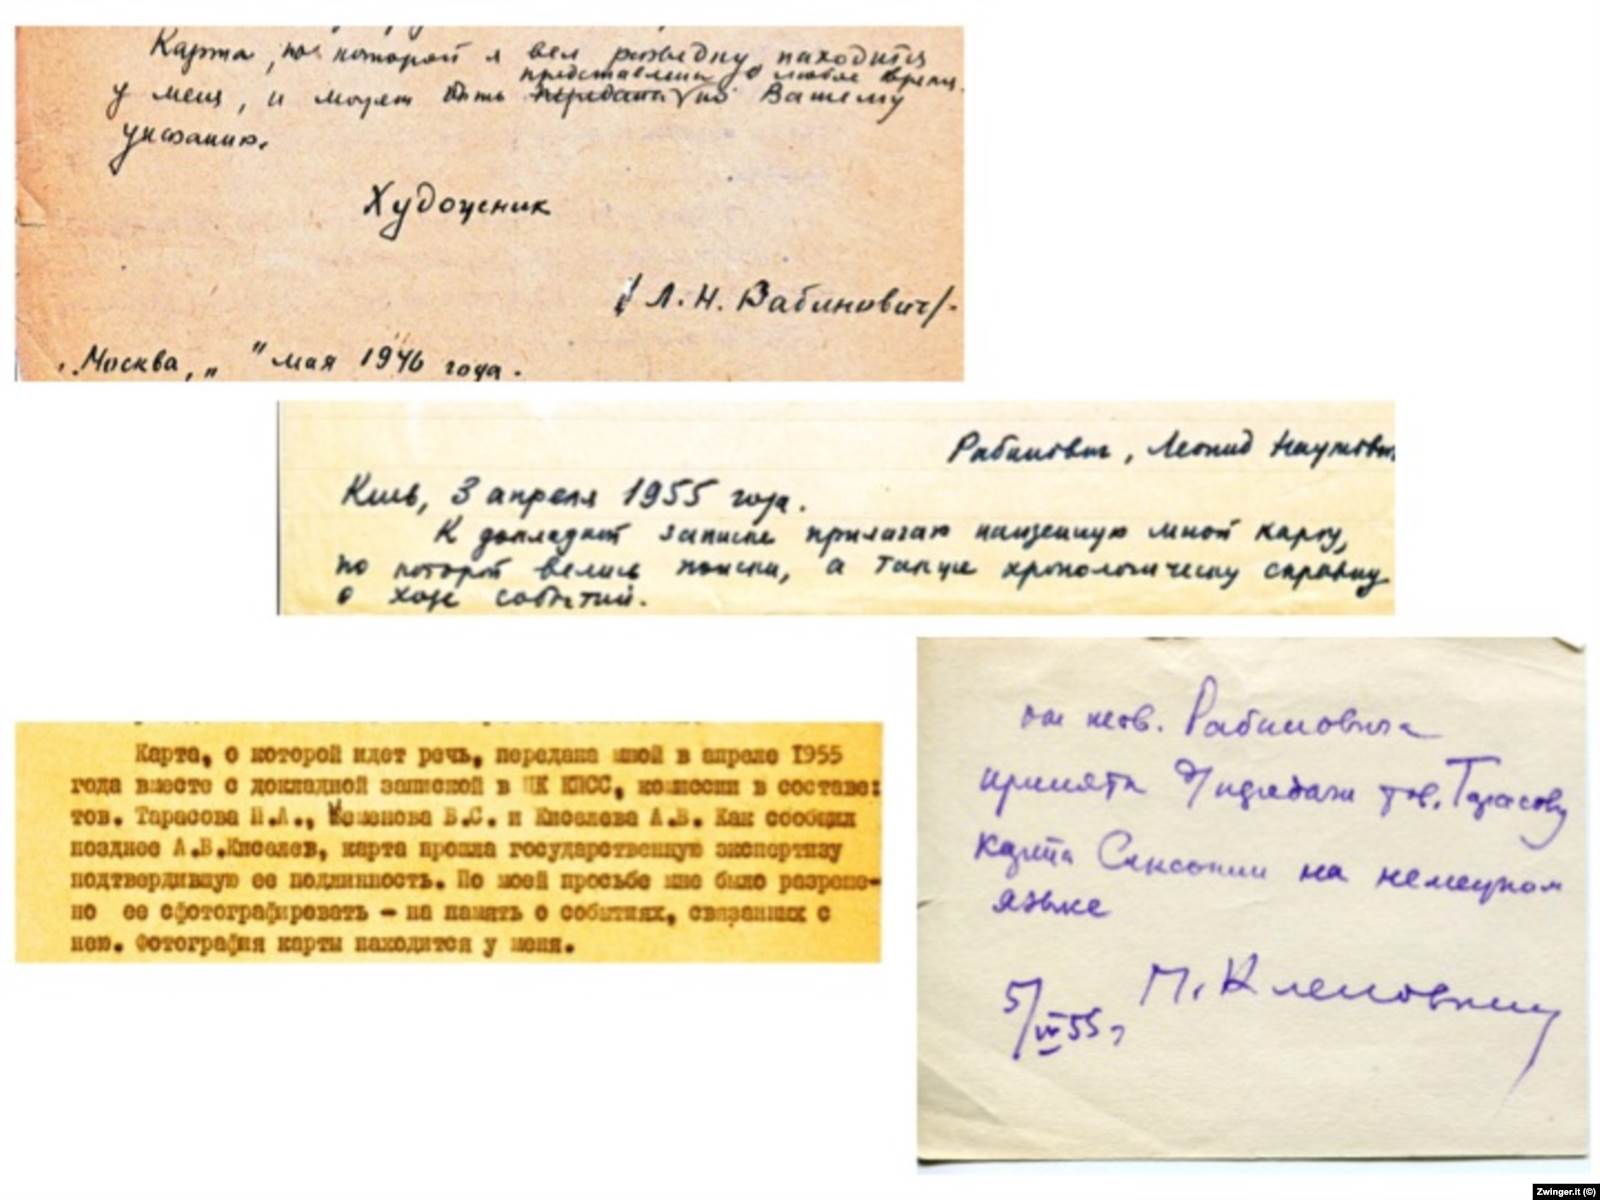 Карта, по которой я вел разведку, находится
представлена в любое время
у меня, и может быть передана по Вашему
указанию.
Художник
/Л.Н. Рабинович/.
Москва, " " мая 1946 года.
Рабинович, Леонид Наумович
Киев, 3 апреля 1955 года.
К докладной записке прилагаю найденную мной карту,
по которой велись поиски, а также хронологическую справку
о ходе событий.
Карта, о которой идет речь, передана мной в апреле 1955
года вместе с докладной запиской в ЦК КПСС, комиссии в составе:
тов. Тарасова П.А., Кеменова В.С. и Киселева А.В. Как сообщил
позднее А.В.Киселев, карта прошла государственную экспертизу
подтвердившую ее подлинность. По моей просьбе мне было разреше-
но ее сфотографировать - на память о событиях, связанных с
нею. Фотография карты находится у меня.
От тов. Рабиновича
принята д/передачи тов. Тарасову
карта Саксонии на немецком
языке
5/ 55г
Zwinger.it (©)